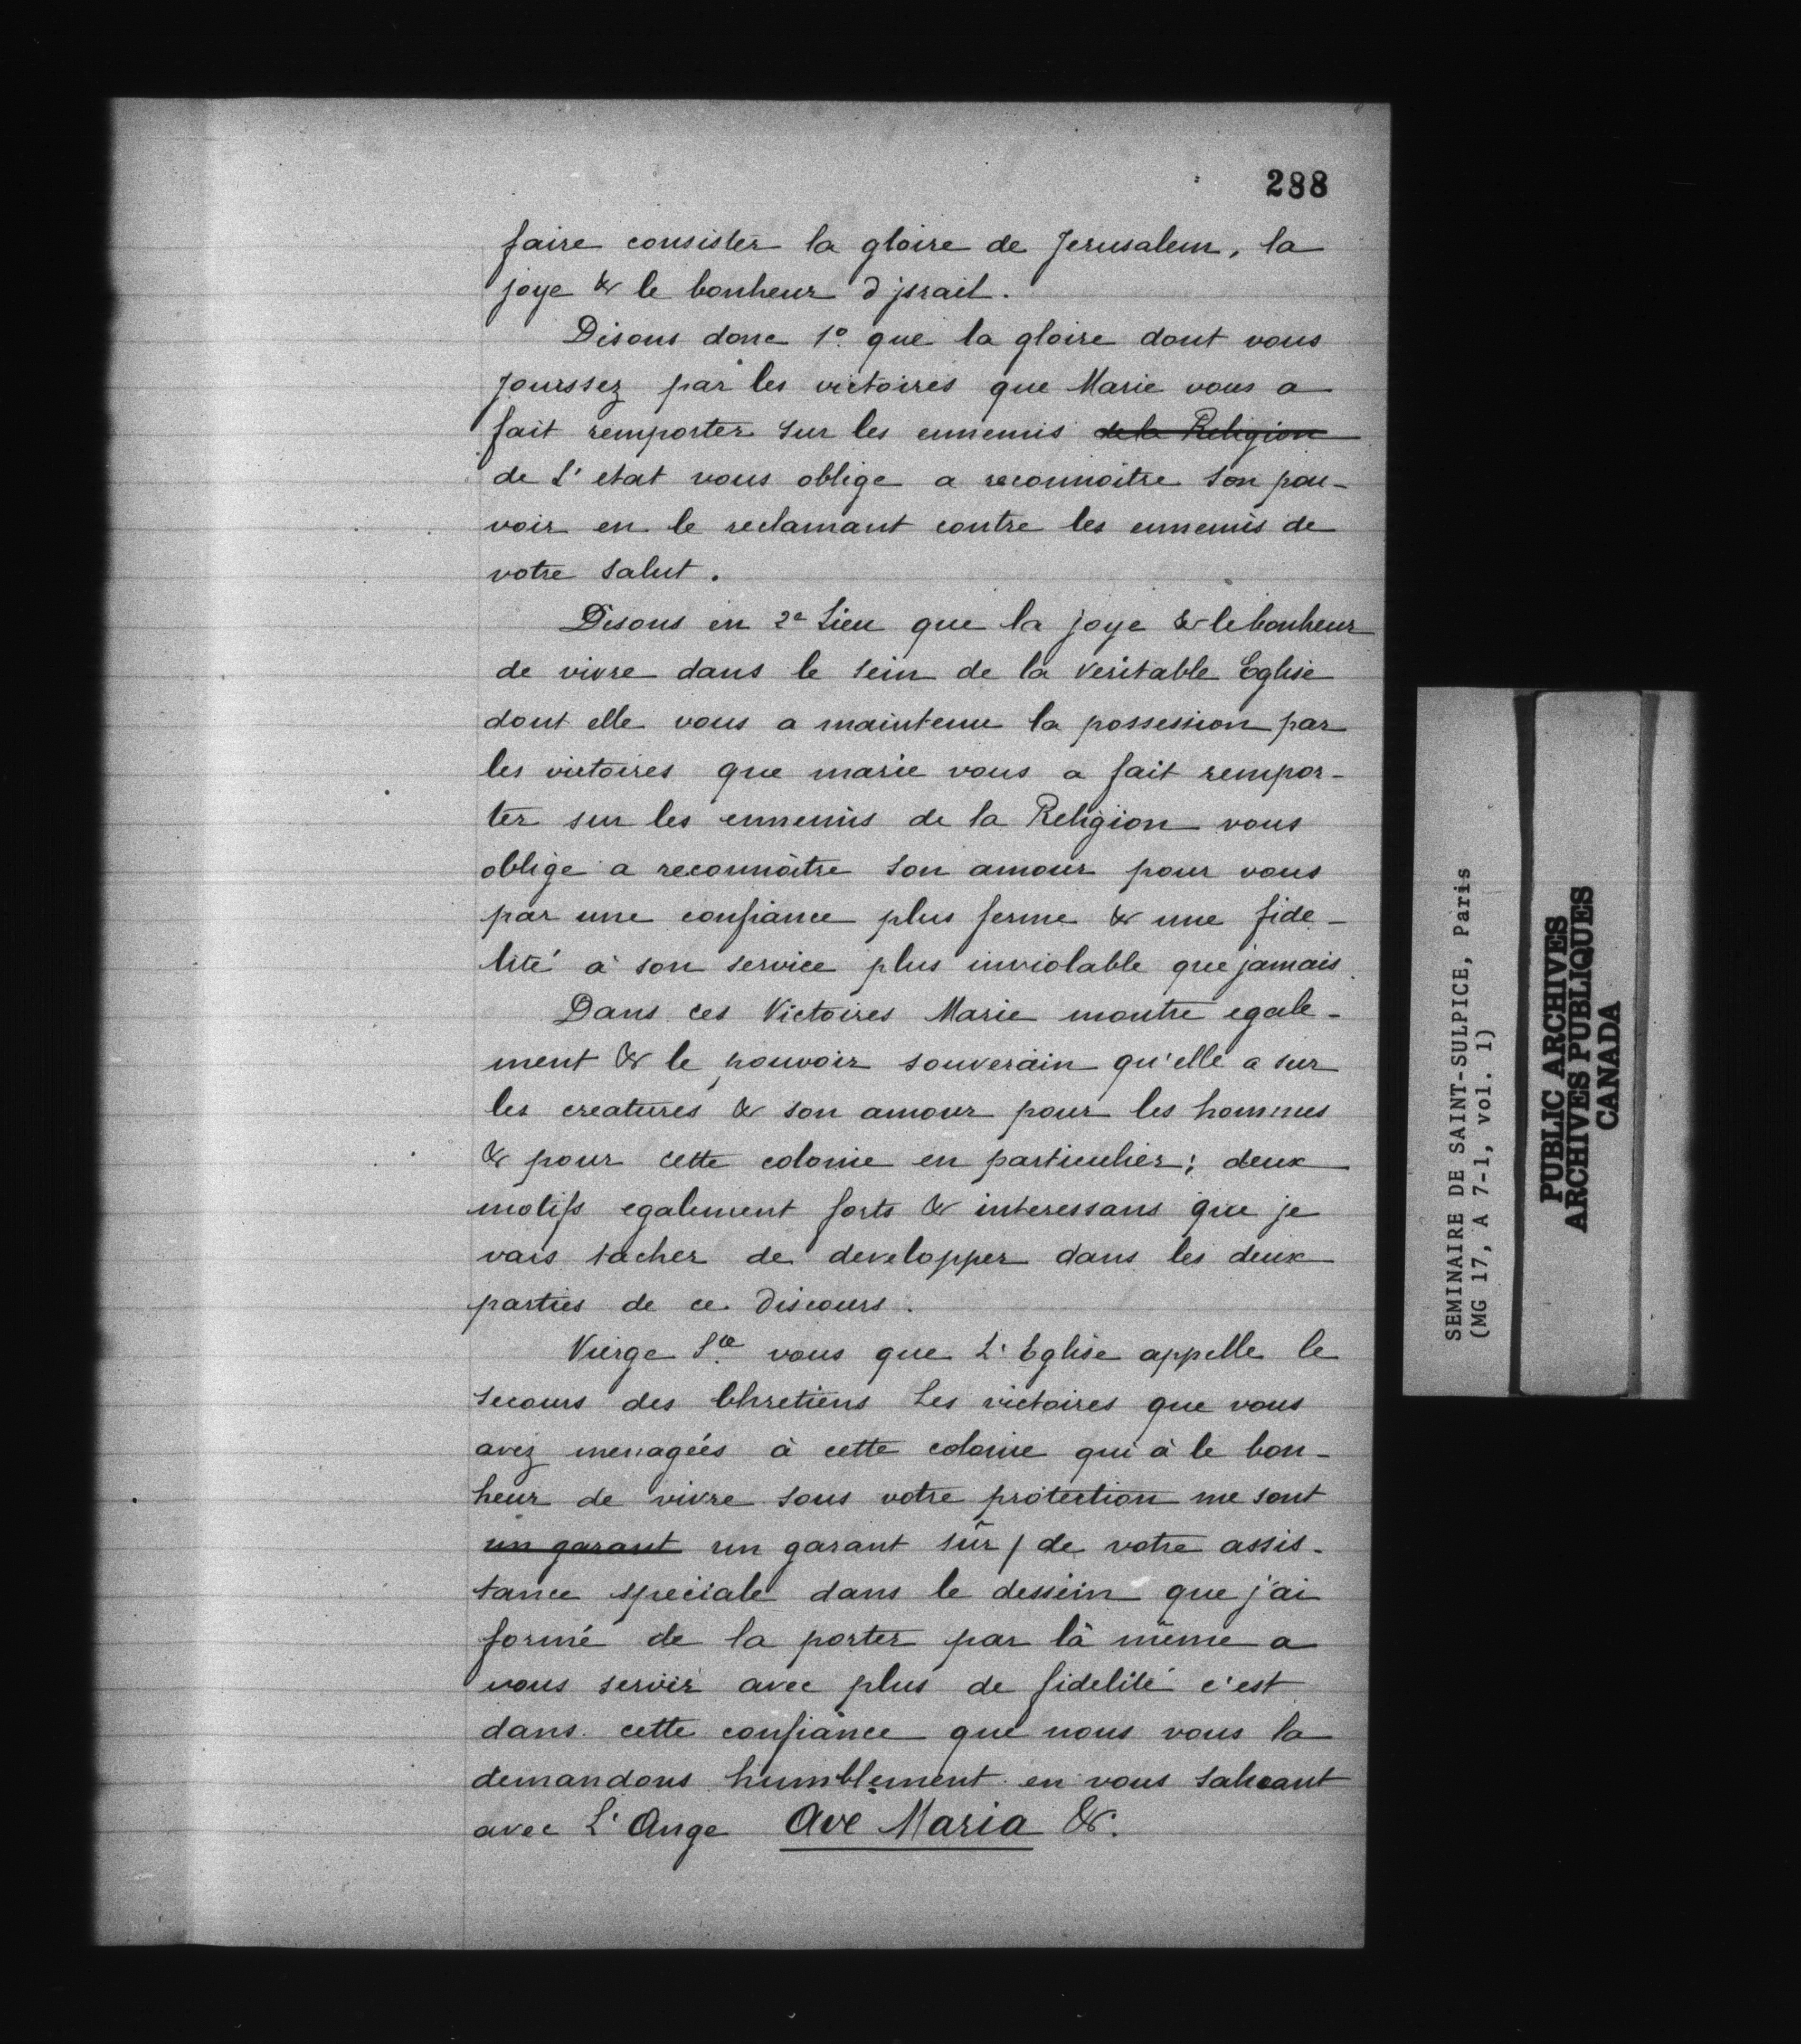 288
faire consister la gloire de Jerusalem, la
joye & le bonheur d'jsrael.
Disons donc 1º que la gloire dont vous
jouissez par les victoires que Marie vous a
fait remporter sur les ennemis de la Religion
de L'etat vous oblige a reconnoitre son pou-
voir en le reclamant contre les ennemis de
votre salut.
Disons en 2e Lieu que la joye & le bonheur
de vivre dans le sein de la veritable Eglise
dont elle vous a maintenu la possession par
les victoires que marie vous a fait rempor-
ter sur les ennemis de la Religion vous
oblige a reconnoitre son amour pour vous
par une confiance plus ferme & une fide-
lité à son service plus inviolable que jamais.
Dans ces Victoires Marie montre egale-
ment & le pouvoir souverain qu'elle a sur
les creatures & son amour pour les hommes
& pour cette colonie en particulier; deux
motifs egalement forts & interessans que je
vais tacher de developper dans les deux
parties de ce Discours.
Vierge Ste vous que L'Eglise appelle le
secours des Chretiens Les victoires que vous
avez menagées à cette colonie qui à le bon-
heur de vivre sous votre protection me sont
un garant un garant sûr / de votre assis-
tance speciale dans le dessein que j'ai
formé de la porter par là même a
vous servir avec plus de fidelité c'est
dans cette confiance que nous vous la
demandons humblement en vous saluant
avec L'Ange Ave Maria &.
SEMINAIRE DE SAINT-SULPICE, Paris
(MG 17, A 7-1, vol. 1)
PUBLIC ARCHIVES
ARCHIVES PUBLIQUES
CANADA